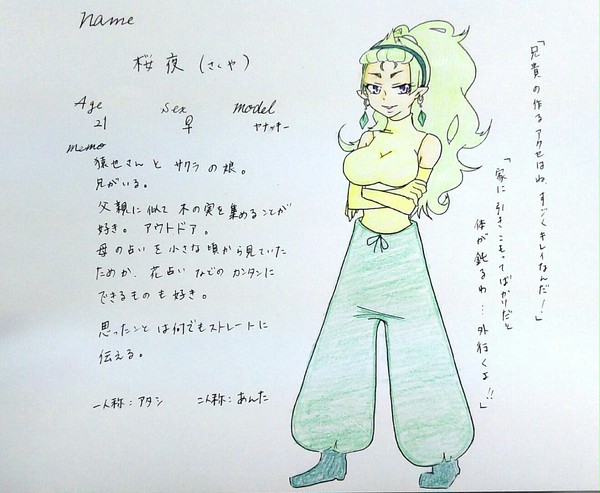 name
桜夜(さくや)
Age sex model
21 ♀ ヤナッキー
memo
猿也さんとサクラの娘。
兄がいる。
父親に似て木の実を集めることが
好き。アウトドア。
母の占いを小さな頃から見ていた
ためか、花占いなどのカンタンに
できるものも好き。
思ったことは何でもストレートに
伝える。
一人称:アタシ 二人称:あんた
「兄貴の作るアクセはね、すごくキレイなんだ!」
「家に引きこもってばかりだと
体が鈍るわ…外行くよ!!」